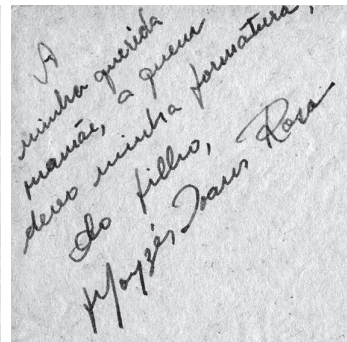 A
minha querida
mamãe, a quem
devo minha formatura,
do filho,
Moyzés Isaac Rosa